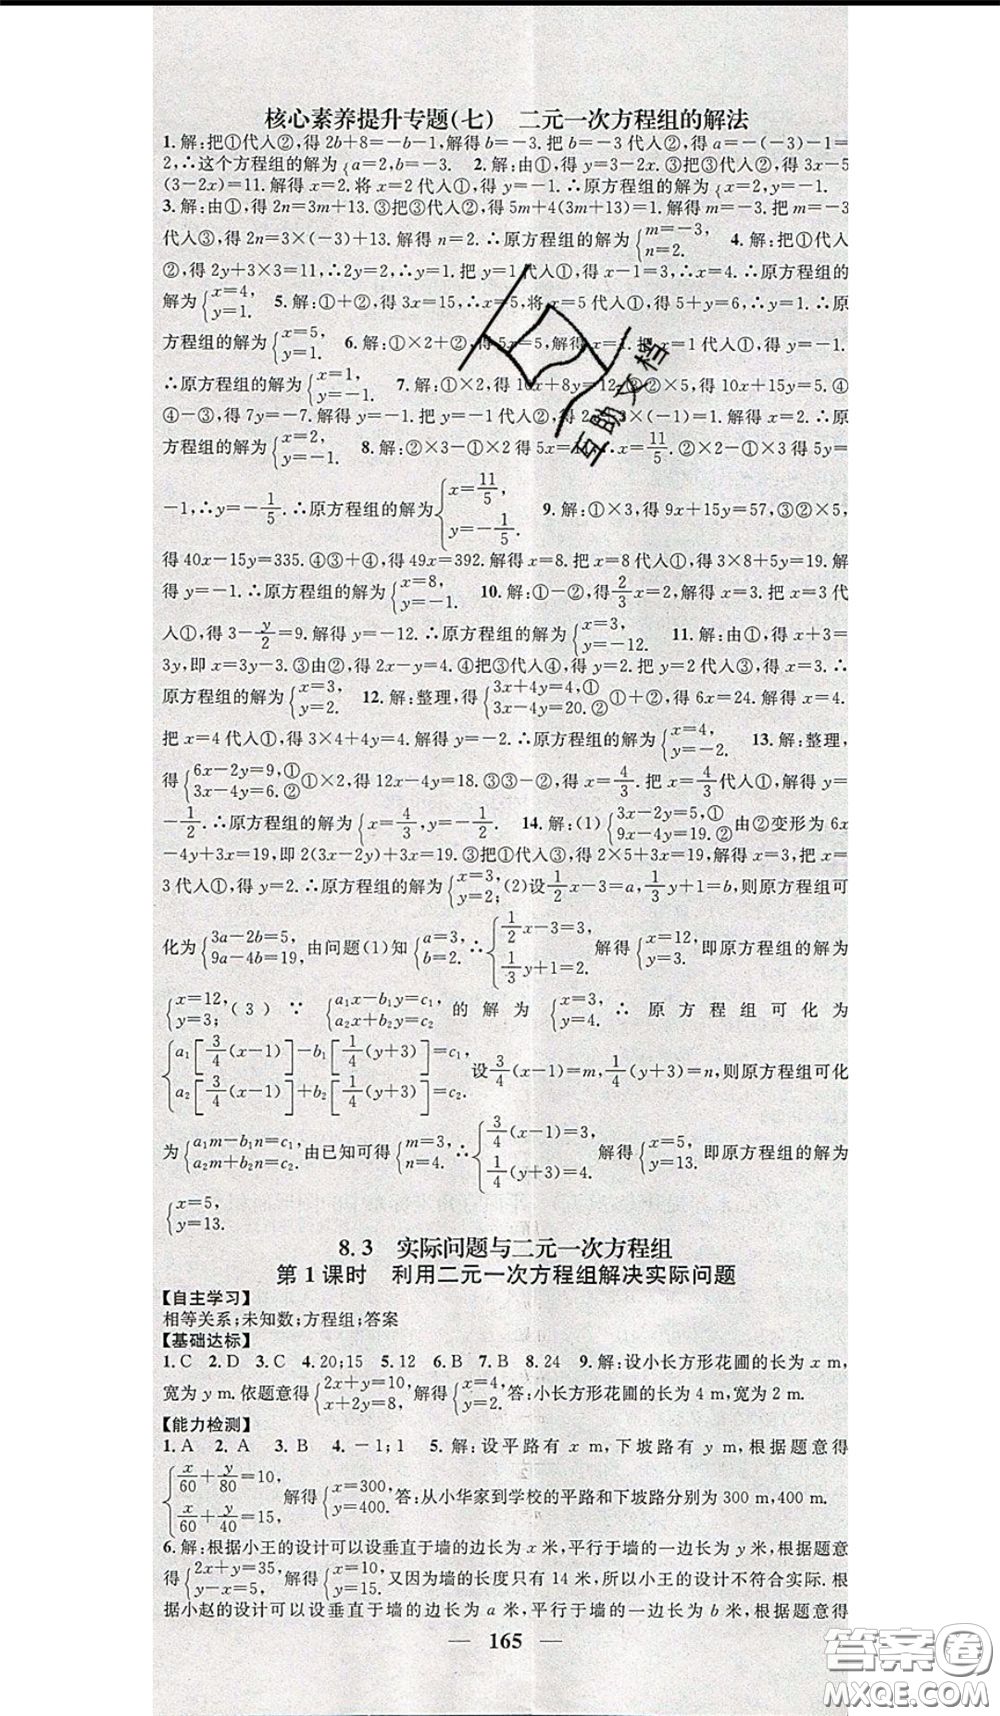 核心素养提升专题(七) 二元一次方程组的解法
1.解:把①代入②,得2b+8=-b-1,解得b=-3.把b=-3代入②,得a=-(-3)-1=
2,∴这个方程组的解为{a=2,b=-3. 2.解:由①,得y=3-2x.③把③代入②,得3x-5
(3-2x)=11.解得x=2.将x=2代入③,得y=-1.∴原方程组的解为{x=2,y=-1.
3.解:由①,得2n=3m+13.③把③代入②,得5m+4(3m+13)=1.解得m=-3.把m=-3
代入③,得2n=3×(-3)+13.解得n=2.∴原方程组的解为{m=-3, n=2. 4.解:把①代入
②,得2y+3×3=11,∴2y=2,∴y=1.把y=1代入①,得x-1=3,∴x=4.∴原方程组的
解为{x=4, y=1. 5.解:①+②,得3x=15,∴x=5,将x=5代入①,得5+y=6,∴y=1.∴原
方程组的解为{x=5, y=1. 6.解:①×2+②,得5x=5,解得x=1.把x=1代入①,得y=-1.
∴原方程组的解为{x=1, y=-1. 7.解:①×2,得10x+8y=12.③②×5,得10x+15y=5.④
④-③,得7y=-7.解得y=-1.把y=-1代入②,得2x+3×(-1)=1.解得x=2.∴原
方程组的解为{x=2, y=-1. 8.解:②×3-①×2得5x=11,∴x=11/5.②×2-①×3得5y=
-1,∴y=-1/5.∴原方程组的解为{x=11/5, y=-1/5. 9.解:①×3,得9x+15y=57,③②×5,
得40x-15y=335.④③+④,得49x=392.解得x=8.把x=8代入①,得3×8+5y=19.解
得y=-1.∴原方程组的解为{x=8, y=-1. 10.解:①-②,得2/3x=2,解得x=3.把x=3代
入①,得3-y/2=9.解得y=-12.∴原方程组的解为{x=3, y=-12. 11.解:由①,得x+3=
3y,即x=3y-3.③由②,得2x-y=4.④把③代入④,得y=2.把y=2代入③,得x=3.∴
原方程组的解为{x=3, y=2. 12.解:整理,得{3x+4y=4,① 3x-4y=20.② ①+②,得6x=24.解得x=4.
把x=4代入①,得3×4+4y=4.解得y=-2.∴原方程组的解为{x=4, y=-2. 13.解:整理,
得{6x-2y=9,① 3x-4y=6.② ①×2,得12x-4y=18.③③-②,得x=4/3.把x=4/3代入①,解得y=
-1/2.∴原方程组的解为{x=4/3,y=-1/2. 14.解:(1){3x-2y=5,① 9x-4y=19.② 由②变形为6x
-4y+3x=19,即2(3x-2y)+3x=19.③把①代入③,得2×5+3x=19,解得x=3,把x=
3代入①,得y=2.∴原方程组的解为{x=3, y=2; (2)设1/2x-3=a,1/3y+1=b,则原方程组可
化为{3a-2b=5, 9a-4b=19, 由问题(1)知{a=3, b=2. ∴{1/2x-3=3, 1/3y+1=2. 解得{x=12, y=3. 即原方程组的解为
{x=12, y=3; (3) ∵ {a₁x-b₁y=c₁, a₂x+b₂y=c₂ 的解为 {x=3, y=4. ∴原方程组可化为
{a₁[3/4(x-1)]-b₁[1/4(y+3)]=c₁, a₂[3/4(x-1)]+b₂[1/4(y+3)]=c₂. 设3/4(x-1)=m,1/4(y+3)=n,则原方程组可化
为{a₁m-b₁n=c₁, a₂m+b₂n=c₂. 由已知可得{m=3, n=4. ∴{3/4(x-1)=3, 1/4(y+3)=4. 解得{x=5, y=13. 即原方程组的解为
{x=5, y=13.
8.3 实际问题与二元一次方程组
第1课时 利用二元一次方程组解决实际问题
【自主学习】
相等关系;未知数;方程组;答案
【基础达标】
1.C 2.D 3.C 4.20;15 5.12 6.B 7.B 8.24 9.解:设小长方形花圃的长为x m,
宽为y m.依题意得{2x+y=10, x+2y=8, 解得{x=4, y=2. 答:小长方形花圃的长为4 m,宽为2 m.
【能力检测】
1.A 2.A 3.B 4.-1;1 5.解:设平路有x m,下坡路有y m,根据题意得
{x/60+y/80=10, x/60+y/40=15, 解得{x=300, y=400. 答:从小华家到学校的平路和下坡路分别为300 m,400 m.
6.解:根据小王的设计可以设垂直于墙的边长为x米,平行于墙的一边长为y米,根据题意
得{2x+y=35, y-x=5. 解得{x=10, y=15. 又因为墙的长度只有14米,所以小王的设计不符合实际.根
据小赵的设计可以设垂直于墙的边长为a米,平行于墙的一边长为b米,根据题意得
— 165 —
互助文档
答案卷
MXQE.COM